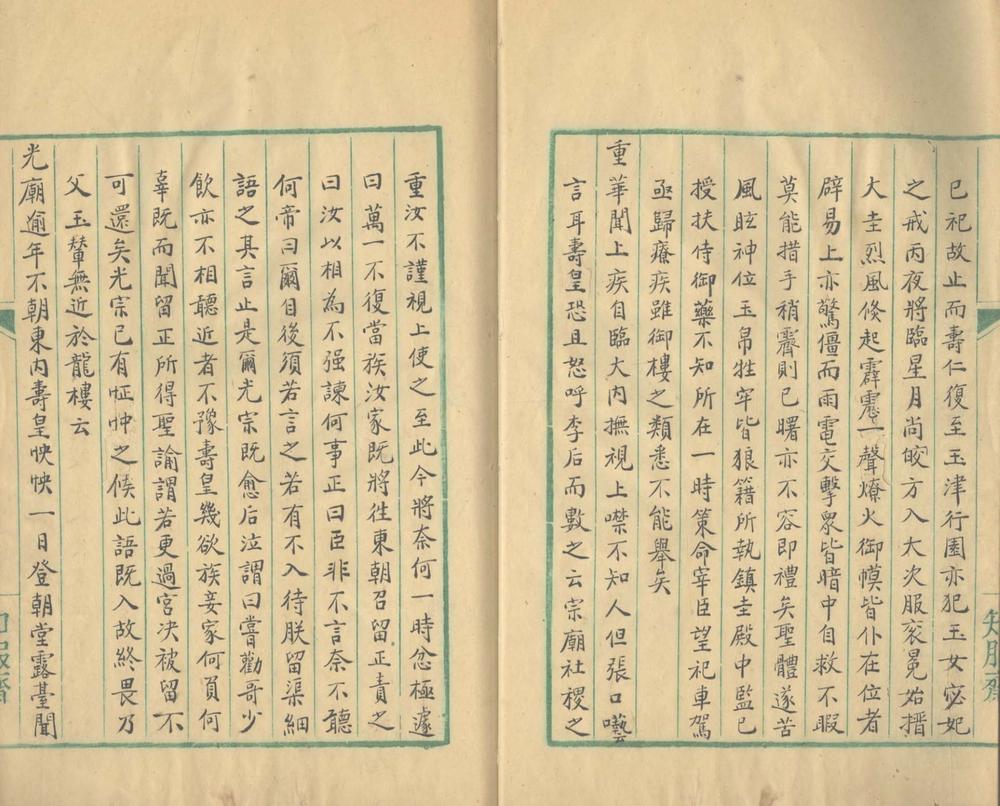 已祀故止而壽仁復至玉津行園亦犯玉女宓妃
之戒丙夜將臨星月尚皎方入大次服衮冕始搢
大圭烈風倏起霹靂一聲燎火御幙皆仆在位者
辟易上亦驚僵而雨電交擊衆皆暗中自救不暇
莫能措手稍霽則已曙亦不容即禮矣聖體遂苦
風眩神位玉帛牲牢皆狼籍所執鎮圭殿中監已
授扶侍御藥不知所在一時策命宰臣望祀車駕
亟歸療疾雖御樓之類悉不能舉矣
重華聞上疾自臨大内撫視上噤不知人但張口囈
言耳壽皇恐且怒呼李后而數之云宗廟社稷之
知服齋
重汝不謹視上使之至此今將奈何一時忿極遽
曰萬一不復當族汝家既將徃東朝召留正責之
曰汝以相為不强諫何事正曰臣非不言奈不聽
何帝曰爾自後須若言之若有不入待朕留渠細
語之其言止是爾光宗既愈后泣謂曰嘗勸哥少
飲亦不相聽近者不豫壽皇幾欲族妾家何負何
辜既而聞留正所得聖諭謂若更過宮决被留不
可還矣光宗已有怔忡之候此語既入故終畏乃
父玉輦無近於龍樓云
光廟逾年不朝東内壽皇怏怏一日登朝堂露臺聞